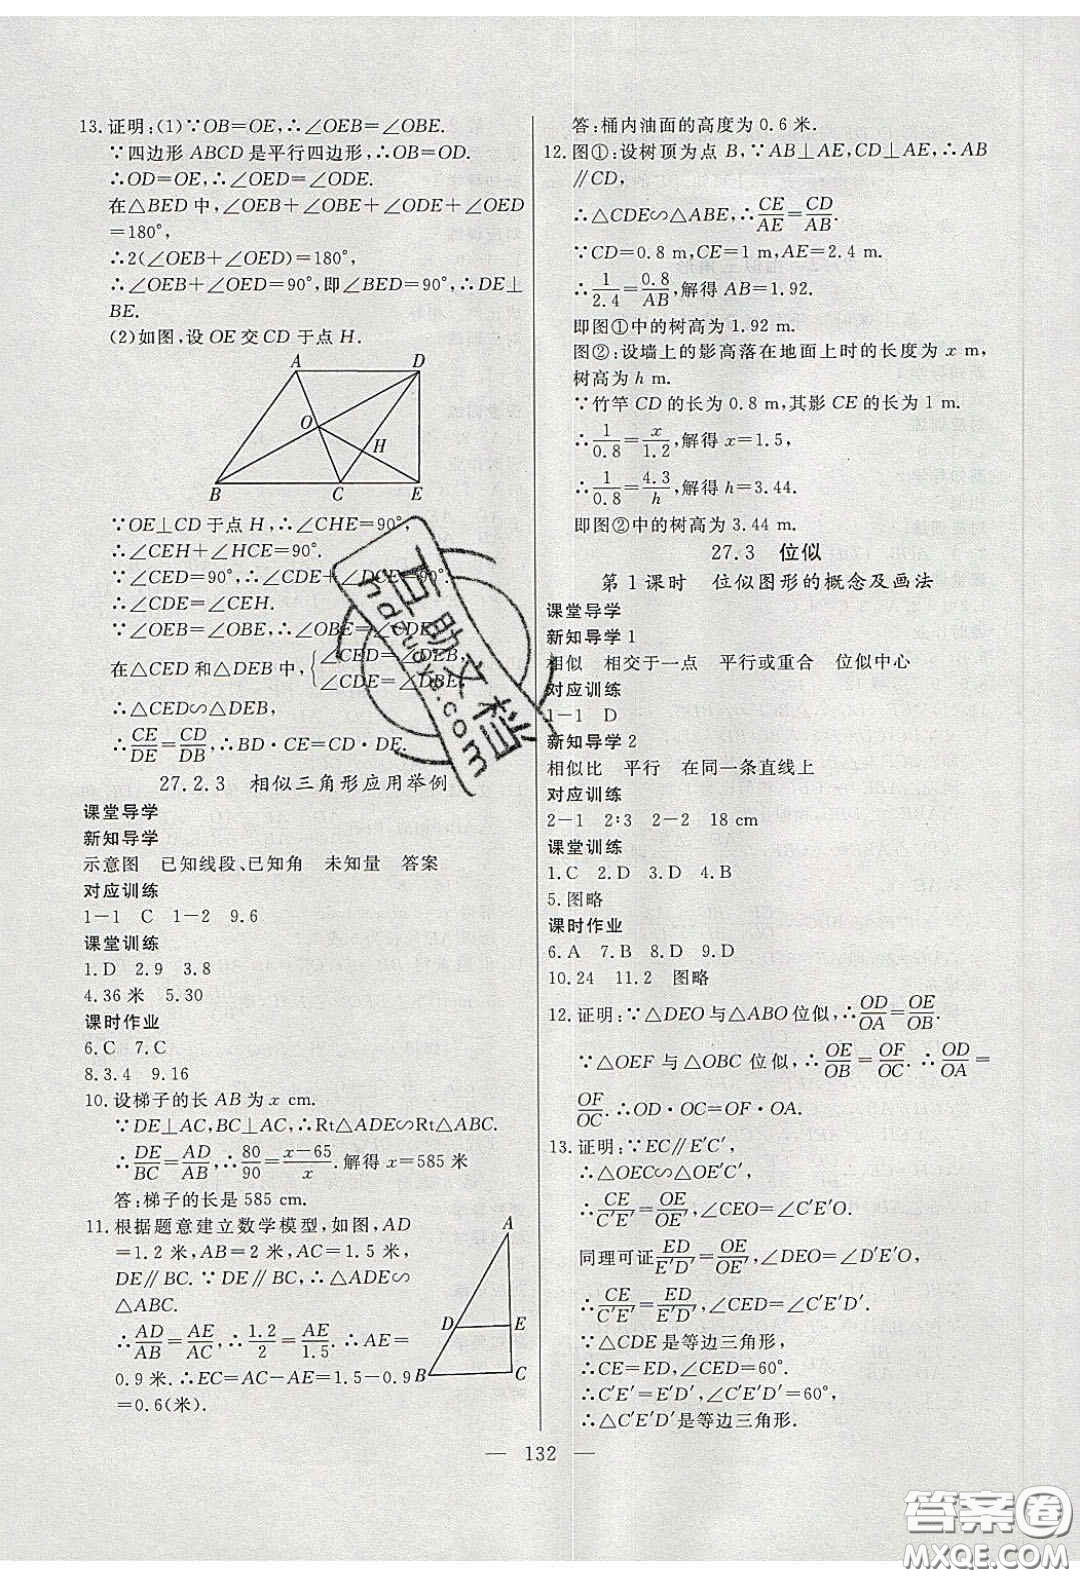 13.证明:(1)∵OB=OE,∴∠OEB=∠OBE.
∵四边形ABCD是平行四边形,∴OB=OD.
∴OD=OE,∴∠OED=∠ODE.
在△BED中,∠OEB+∠OBE+∠ODE+∠OED
=180°,
∴2(∠OEB+∠OED)=180°,
∴∠OEB+∠OED=90°,即∠BED=90°,∴DE⊥
BE.
(2)如图,设OE交CD于点H.
A
D
O
H
B
C
E
∵OE⊥CD于点H,∴∠CHE=90°.
∴∠CEH+∠HCE=90°.
∵∠CED=90°,∴∠CDE+∠DCE=90°,
∴∠CDE=∠CEH.
∵∠OEB=∠OBE,∴∠OBE=∠CDE.
在△CED和△DEB中,{∠CED=∠DEB,
∠CDE=∠DBE.
∴△CED∽△DEB,
∴CE/DE=CD/DB,∴BD·CE=CD·DE.
27.2.3 相似三角形应用举例
课堂导学
新知导学
示意图 已知线段、已知角 未知量 答案
对应训练
1-1 C 1-2 9.6
课堂训练
1.D 2.9 3.8
4.36米 5.30
课时作业
6.C 7.C
8.3.4 9.16
10.设梯子的长AB为x cm.
∵DE⊥AC,BC⊥AC,∴Rt△ADE∽Rt△ABC.
∴DE/BC=AD/AB,∴80/90=(x-65)/x.解得x=585米
答:梯子的长是585 cm.
11.根据题意建立数学模型,如图,AD
=1.2米,AB=2米,AC=1.5米,
DE∥BC.∵DE∥BC,∴△ADE∽
△ABC.
∴AD/AB=AE/AC,∴1.2/2=AE/1.5.∴AE=
0.9米.∴EC=AC-AE=1.5-0.9
=0.6(米).
A
D
E
B
C
答:桶内油面的高度为0.6米.
12.图①:设树顶为点B,∵AB⊥AE,CD⊥AE,∴AB
∥CD,
∴△CDE∽△ABE,∴CE/AE=CD/AB.
∵CD=0.8 m,CE=1 m,AE=2.4 m.
∴1/2.4=0.8/AB,解得AB=1.92.
即图①中的树高为1.92 m.
图②:设墙上的影高落在地面上时的长度为x m,
树高为h m.
∵竹竿CD的长为0.8 m,其影CE的长为1 m.
∴1/0.8=x/1.2,解得x=1.5,
∴1/0.8=4.3/h,解得h=3.44.
即图②中的树高为3.44 m.
27.3 位似
第1课时 位似图形的概念及画法
课堂导学
新知导学1
相似 相交于一点 平行或重合 位似中心
对应训练
1-1 D
新知导学2
相似比 平行 在同一条直线上
对应训练
2-1 2∶3 2-2 18 cm
课堂训练
1.C 2.D 3.D 4.B
5.图略
课时作业
6.A 7.B 8.D 9.D
10.24 11.2 图略
12.证明:∵△DEO与△ABO位似,∴OD/OA=OE/OB.
∵△OEF与△OBC位似,∴OE/OB=OF/OC.∴OD/OA=
OF/OC.∴OD·OC=OF·OA.
13.证明:∵EC∥E′C′,
∴△OEC∽△OE′C′,
∴CE/C′E′=OE/OE′,∠CEO=∠C′E′O.
同理可证ED/E′D′=OE/OE′,∠DEO=∠D′E′O,
∴CE/C′E′=ED/E′D′,∠CED=∠C′E′D′.
∵△CDE是等边三角形,
∴CE=ED,∠CED=60°.
∴C′E′=E′D′,∠C′E′D′=60°,
∴△C′E′D′是等边三角形.
— 132 —
互助文档
答案圈
MXQE.COM